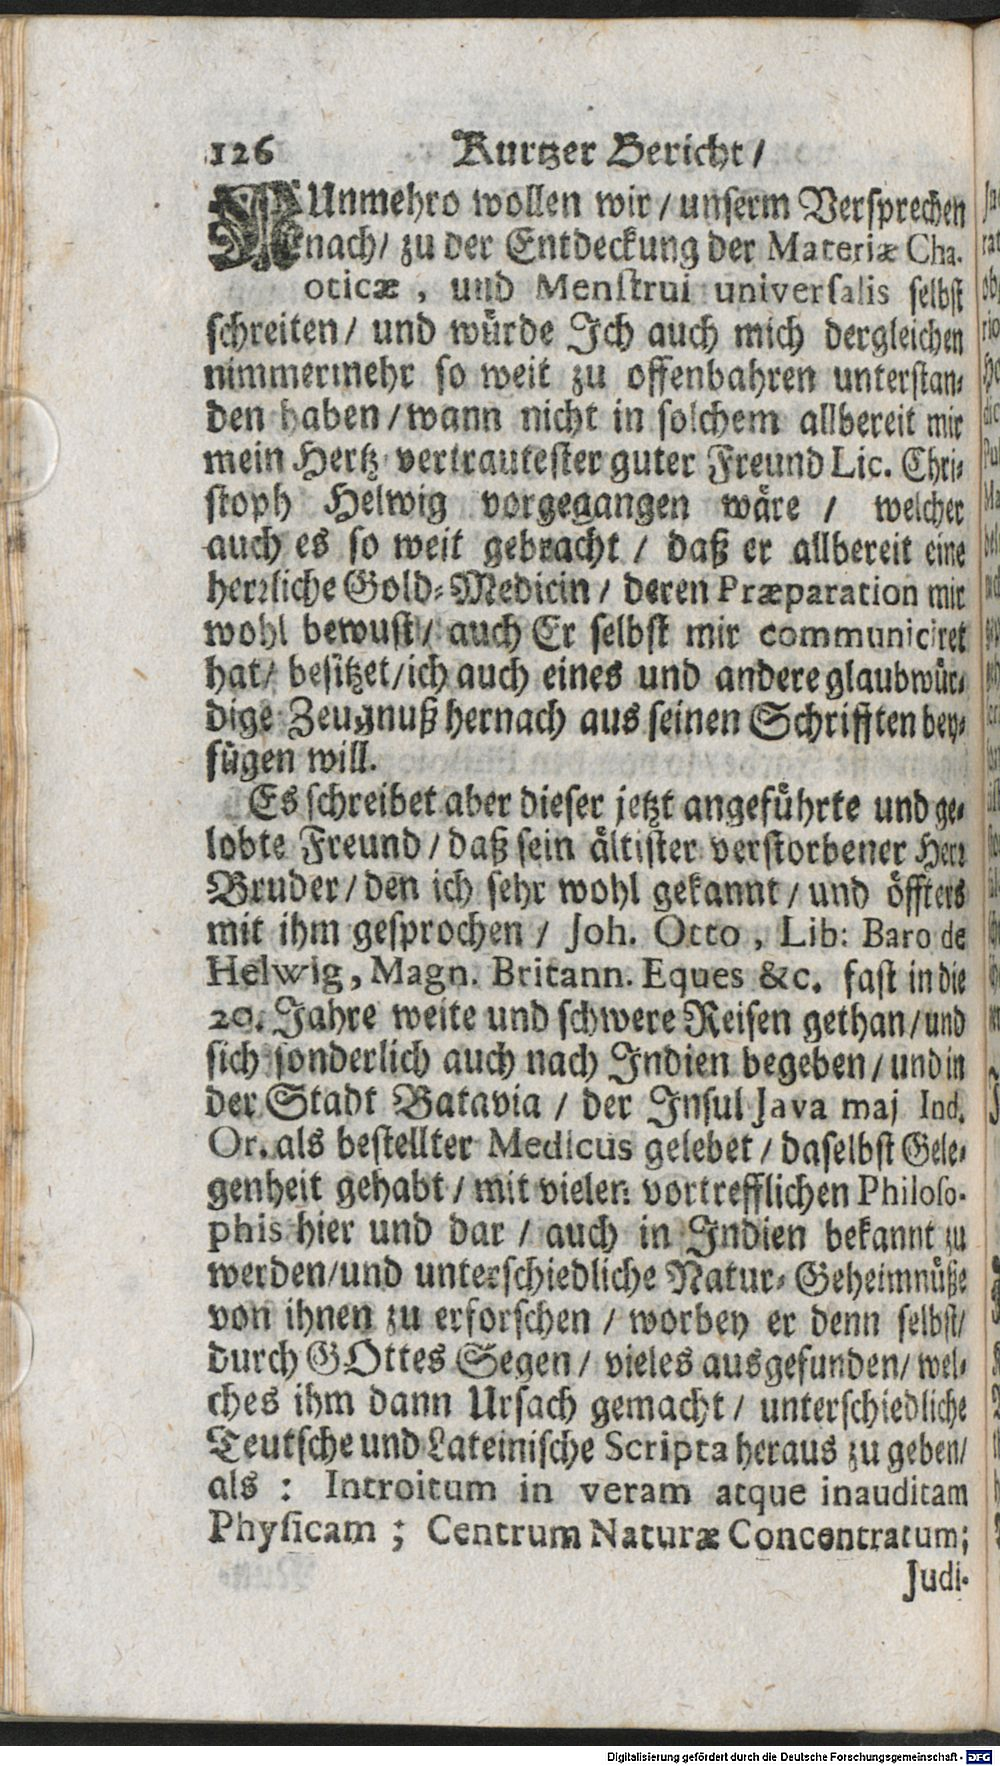 126 Kurtzer Bericht /
NUnmehro wollen wir / unserm Versprechen
nach / zu der Entdeckung der Materiæ Cha-
oticæ , und Menstrui universalis selbst
schreiten / und würde Ich auch mich dergleichen
nimmermehr so weit zu offenbahren unterstan-
den haben / wann nicht in solchem allbereit mir
mein Hertz vertrautester guter Freund Lic. Chri-
stoph Helwig vorgegangen wäre / welcher
auch es so weit gebracht / daß er allbereit eine
herrliche Gold-Medicin / deren Præparation mir
wohl bewust / auch Er selbst mir communiciret
hat / besitzet / ich auch eines und andere glaubwür-
dige Zeugnuß hernach aus seinen Schrifften bey-
fügen will.
Es schreibet aber dieser jetzt angeführte und ge-
lobte Freund / daß sein ältister verstorbener Herr
Bruder / den ich sehr wohl gekannt / und öffters
mit ihm gesprochen / Joh. Otto , Lib: Baro de
Helwig, Magn. Britann. Eques &c. fast in die
20. Jahre weite und schwere Reisen gethan / und
sich sonderlich auch nach Indien begeben / und in
der Stadt Batavia / der Insul Java maj Ind.
Or. als bestellter Medicus gelebet / daselbst Gele-
genheit gehabt / mit vielen vortrefflichen Philoso-
phis hier und dar / auch in Indien bekannt zu
werden / und unterschiedliche Natur-Geheimnüße
von ihnen zu erforschen / worbey er denn selbst /
durch GOttes Segen / vieles ausgefunden / wel-
ches ihm dann Ursach gemacht / unterschiedliche
Teutsche und Lateinische Scripta heraus zu geben /
als : Introitum in veram atque inauditam
Physicam ; Centrum Naturæ Concentratum;
Judi-
Digitalisierung gefördert durch die Deutsche Forschungsgemeinschaft - DFG